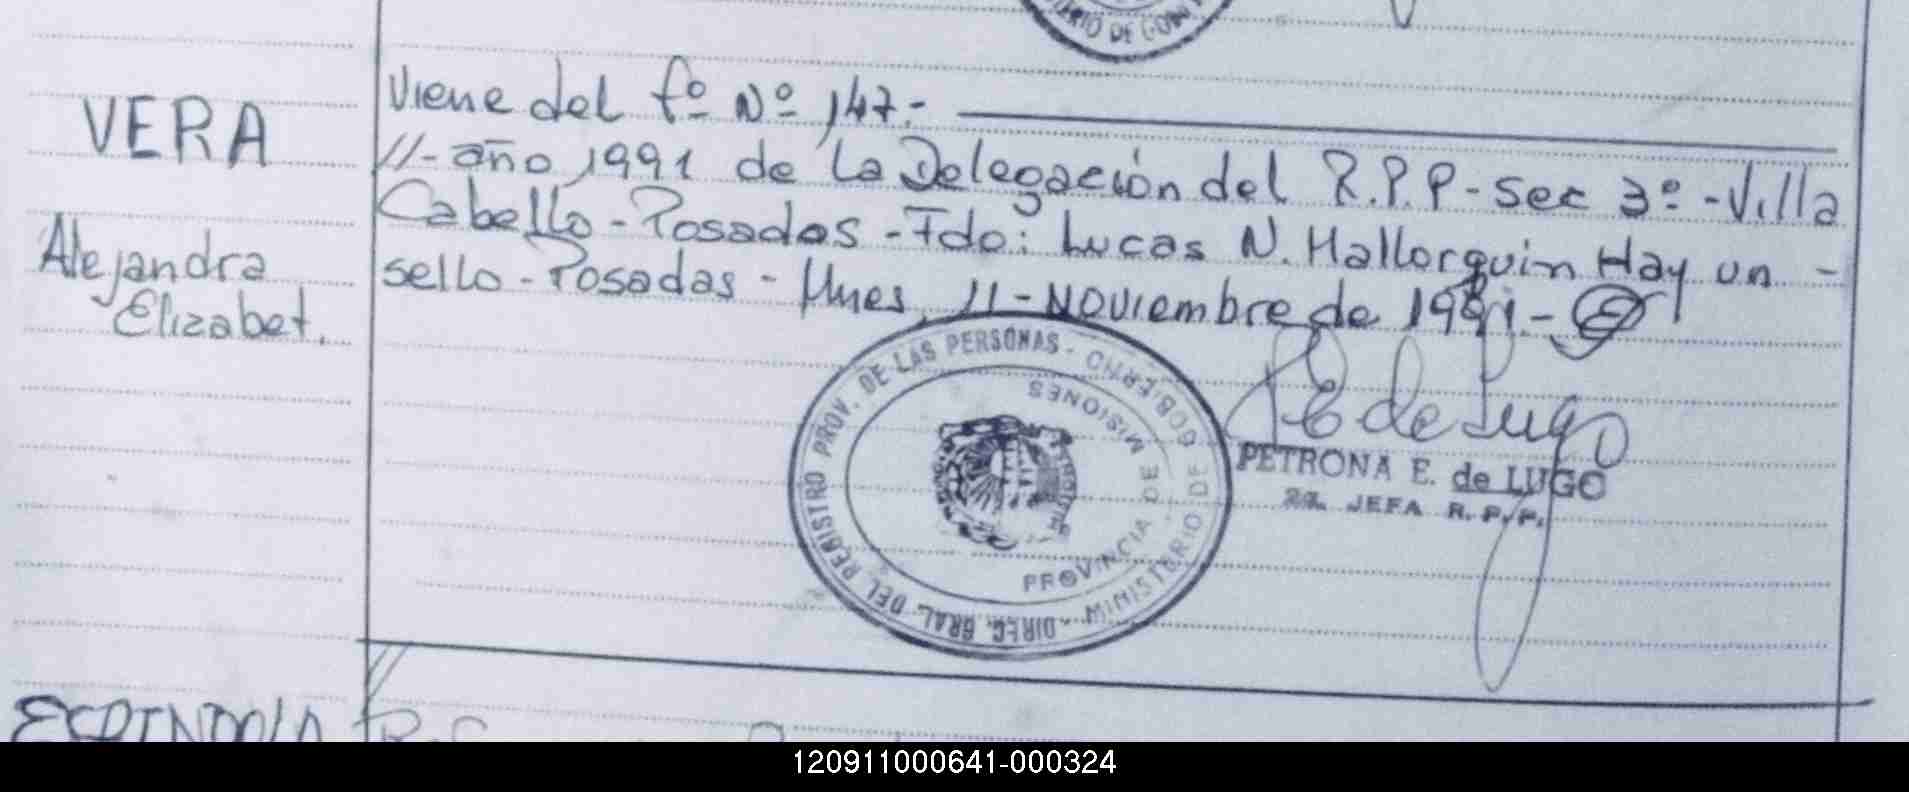 DE GOB
VERA
Alejandra
Elizabet.
Viene del fº Nº 147.-
//-año 1991 de La Delegación del R.P.P-Sec 3º-Villa
Cabello-Posadas-Fdo: Lucas N. Hallorquin Hay un -
sello-Posadas-Mnes, 11-Noviembre de 1991.-
DIREC. GRAL. DEL REGISTRO PROV. DE LAS PERSONAS-
MINISTERIO DE GOBIERNO
PROVINCIA DE MISIONES
P E de Lugo
PETRONA E. de LUGO
2a. JEFA R. P. P.
ESPINDOLA
120911000641-000324